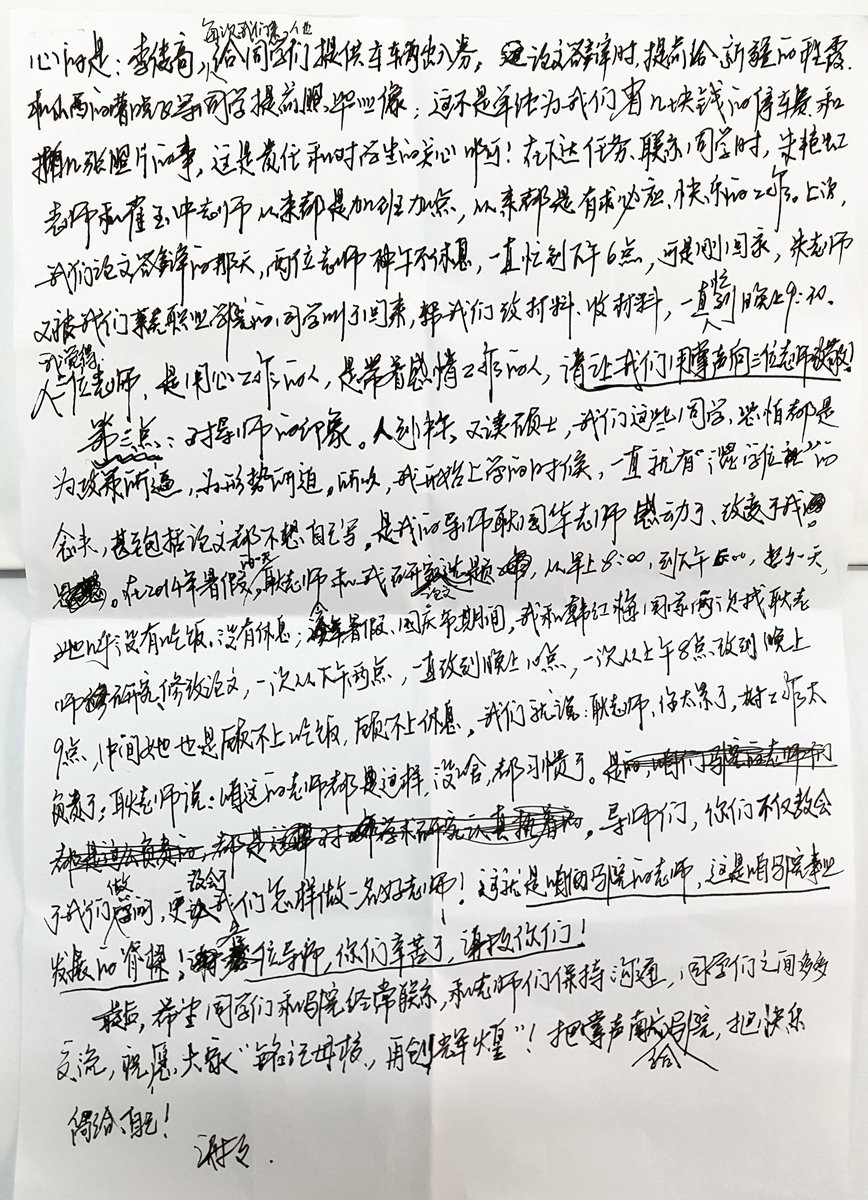 每次我们
心的是：李俊高，给同学们提供车辆出入券，论文答辩时，提前给新疆的
和山西的曹晓飞等同学提前照毕业像；这不是单纯为我们省几块钱的停车券和
几张照片的事，这是责任和对学生的关心呵！在下达任务、联系同学时，朱艳红
老师和崔玉中老师从来都是加班加点，从来都是有求必应、快乐的工作。
我们论文答辩的那天，两位老师中午不休息，一直忙到下午6点，可是刚回家，朱老师
又被我们职业学院的同学叫了回来，帮我们改材料、收材料，一直忙到晚上9:30。
我觉得，三位老师，是用心工作的人，是带着感情工作的人，请让我们用掌声向三位老师致敬！
第三点：对导师的印象。人到中年，又读硕士，我们这些同学，恐怕都是
为政策所逼，为形势所迫。所以，我开始上学的时候，一直就有“混学位证”的
念头，甚至包括论文都不想自己写。是我的导师耿国华老师感动了、改变了我。
在2014年暑假的一天，耿老师和我研究论文选题，从早上8:00，到下午，整个一天，
她几乎没有吃饭、没有休息；今年暑假、国庆节期间，我和韩红梅同学两次找耿老
师研究、修改论文，一次从下午两点，一直改到晚上10点，一次从上午8点改到晚上
9点，中间她也是顾不上吃饭，顾不上休息。我们就说：耿老师，你太累了，对工作太
负责了；耿老师说：咱这的老师都是这样，没啥，都习惯了。是的，咱们马院的老师们
都是这么负责的，都是这样对学术研究认真执着的。导师们，你们不仅教会
了我们做学问，更教会了我们怎样做一名好老师！这就是咱们马院的老师，这是咱马院事业
发展的脊梁！各位导师，你们辛苦了，谢谢你们！
最后，希望同学们和马院经常联系，和老师们保持沟通，同学们之间多多
交流，祝愿大家“铭记母校，再创辉煌”！把掌声献给马院，把快乐
留给自己！
谢谢.